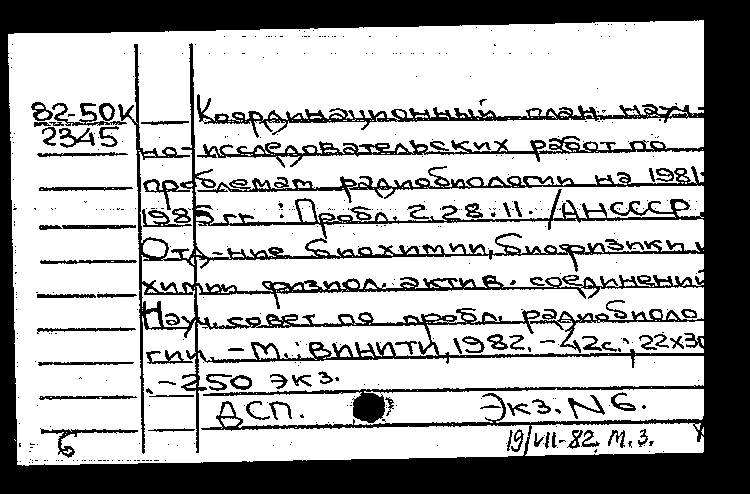 82-50К
2345
Координационный план науч-
но-исследовательских работ по
проблемам радиобиологии на 1981-
1985 гг. : Пробл. 2.28.11. /АНСССР.
Отд-ние биохимии, биофизики и
химии физиол. актив. соединений
Науч. совет по пробл. радиобиоло
гии. - М.: ВИНИТИ, 1982. - 42с.; 22х30
. - 250 экз.
ДСП. Экз. N6.
6 19/VII-82. М.З.